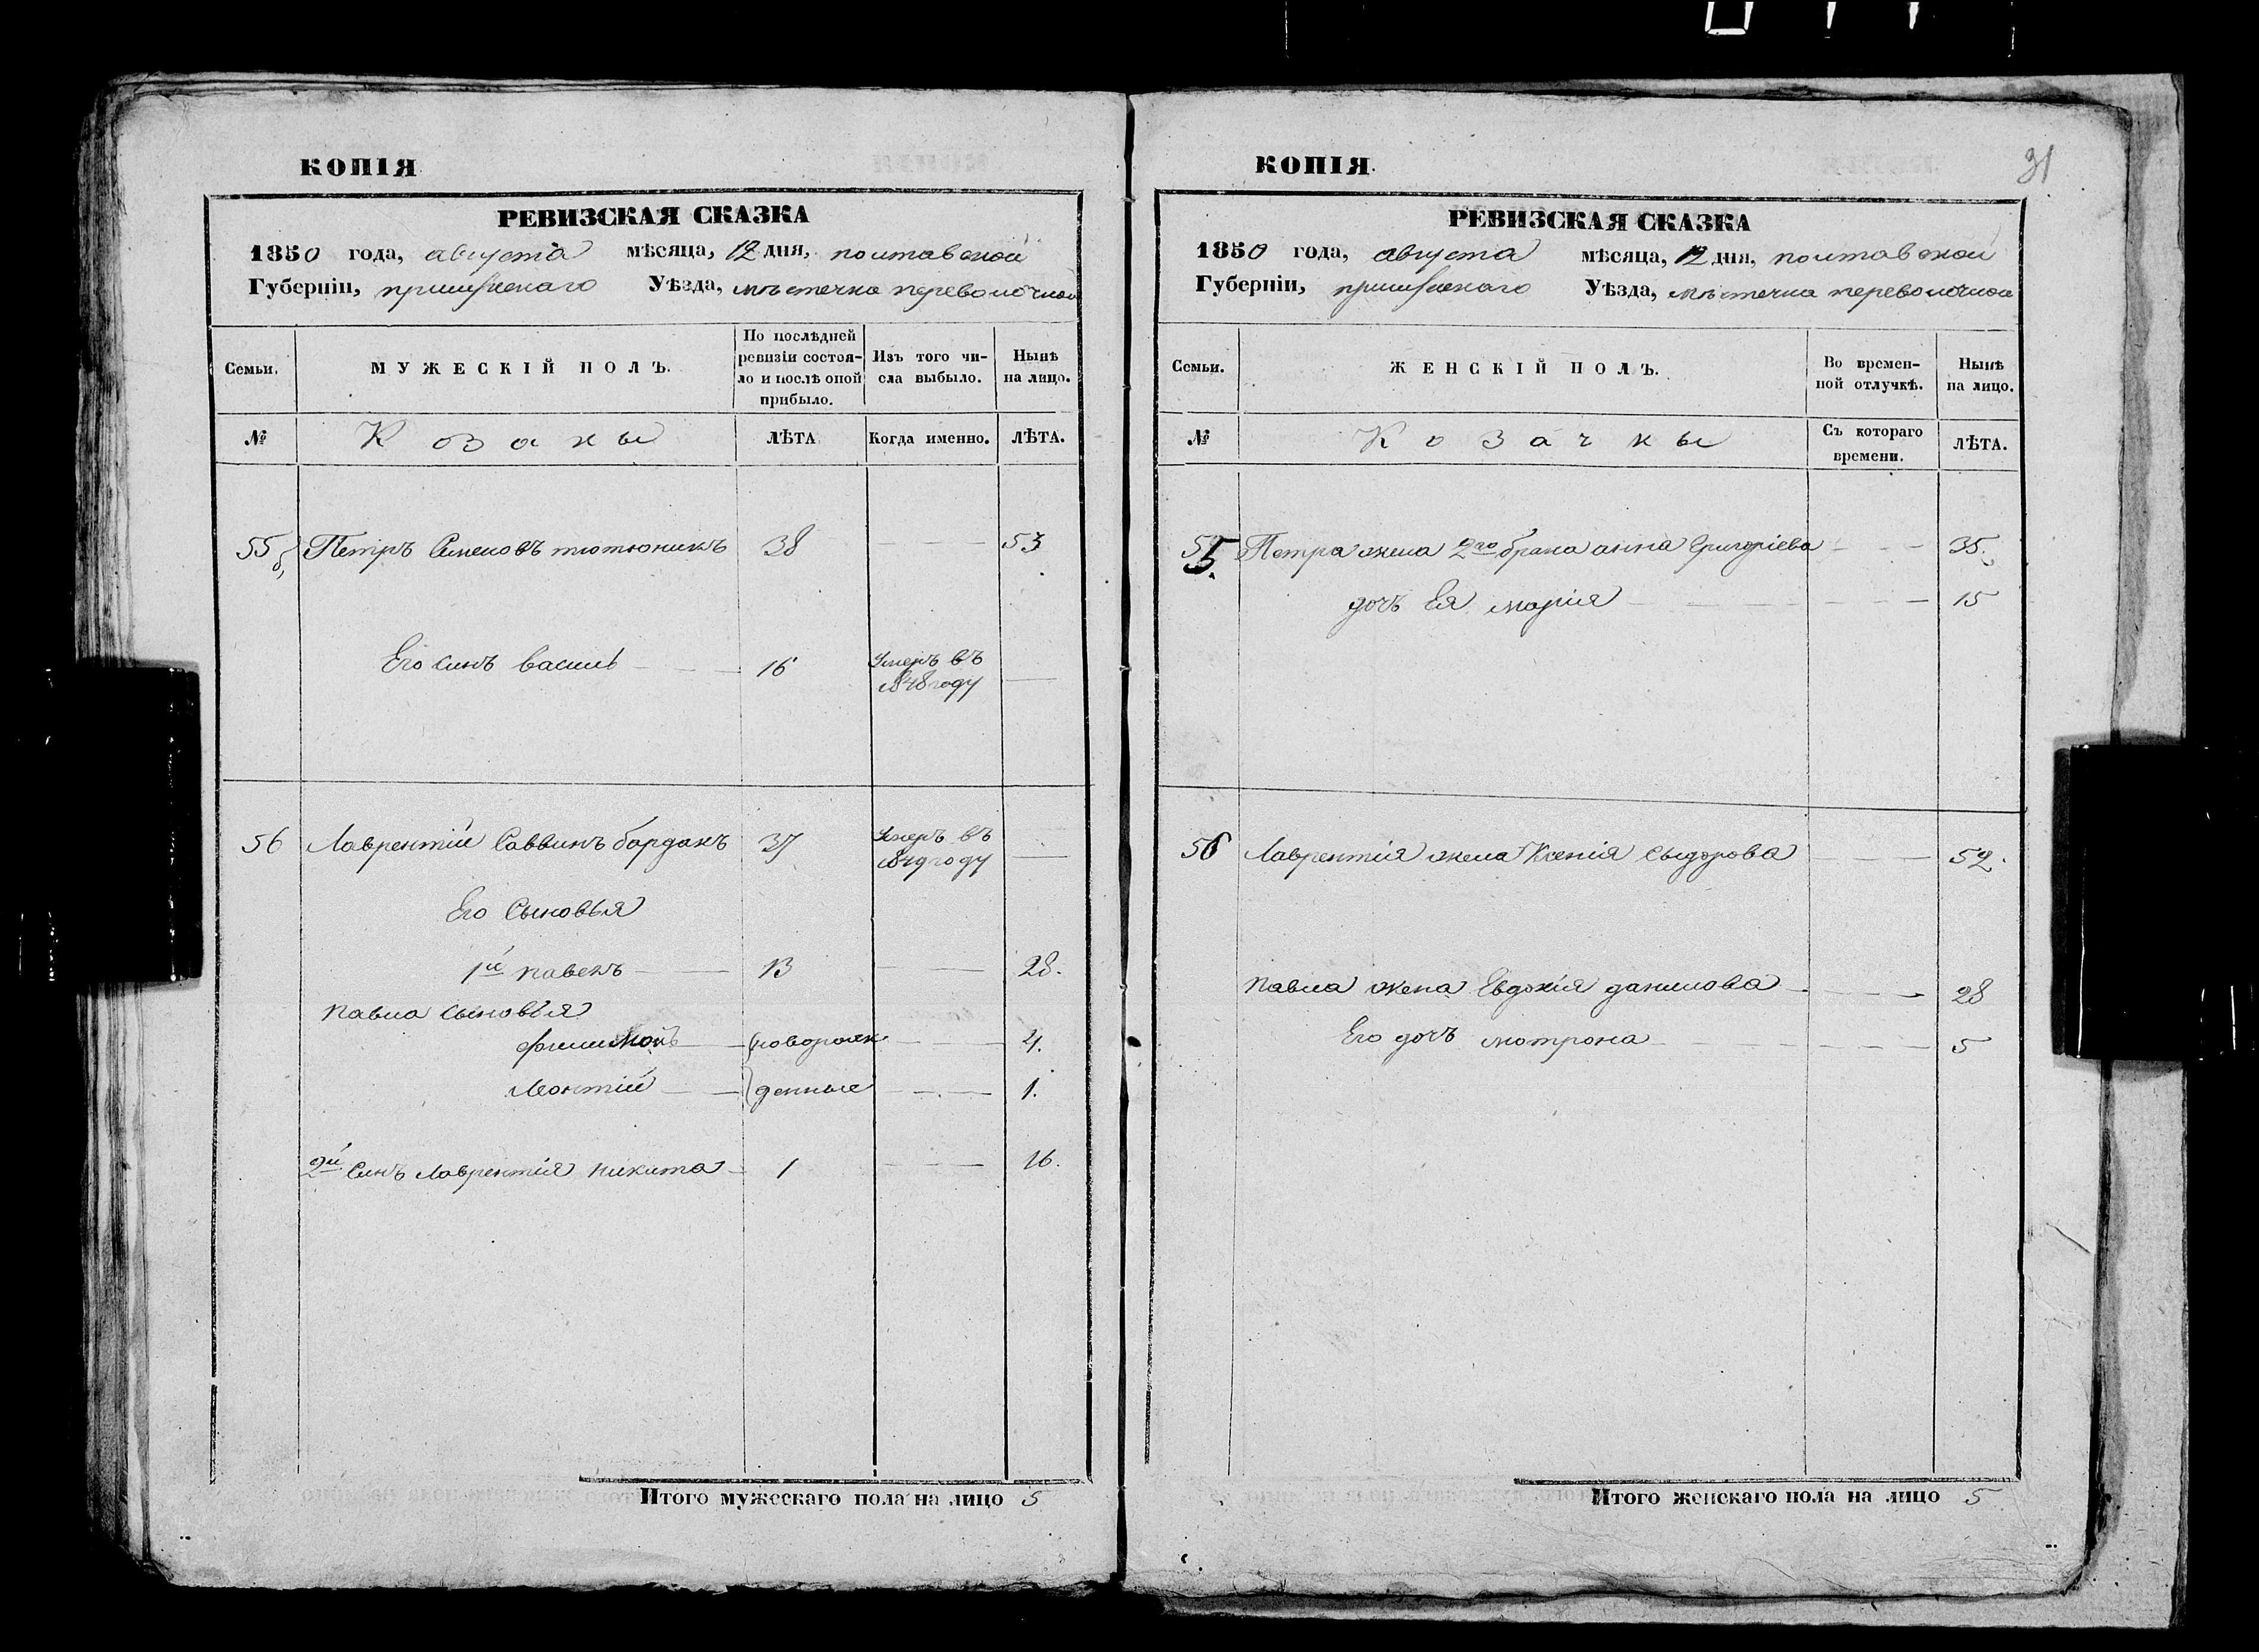 КОПІЯ
РЕВИЗСКАЯ СКАЗКА
1850 года, августа мѣсяца, 12 дня, полтавской
Губерніи, Уѣзда, мѣстечка переволочной
Семьи.
МУЖЕСКІЙ ПОЛЪ.
По послѣдней
ревизіи состоя-
ло и послѣ оной
прибыло.
Изъ того чи-
сла выбыло.
Нынѣ
на лицо.
№
Козаки
ЛѢТА
Когда именно.
ЛѢТА.
55 Петръ Семеновъ тютюникъ 38 — 53
Его синъ василь — 16 Умеръ въ
1848 году —
56 Лаврентій Саввинъ бардакъ 37 Умеръ въ
1849 году —
Его Сыновья
1й павелъ — 13 — 28.
павла сыновья
филимонъ — новорож — 4.
Леонтій — денные — 1.
2й Синъ Лаврентія никита — 1 — 16.
Итого мужескаго пола на лицо 5
КОПІЯ.
31
РЕВИЗСКАЯ СКАЗКА
1850 года, августа мѣсяца, 12 дня, полтавской
Губерніи, Уѣзда, мѣстечка переволочной
Семьи.
ЖЕНСКІЙ ПОЛЪ.
Во времен-
ной отлучкѣ.
Нынѣ
на лицо.
№
Козачки
Съ котораго
времени.
ЛѢТА.
55 Петра жена 2го брака анна Григоріева — 35.
дочъ Ея марія — 15
56 Лаврентія жена Ксенія Сыдорова — 52.
павла жена Евдокія данилова — 28
Его дочъ мотрона — 5
Итого женскаго пола на лицо 5